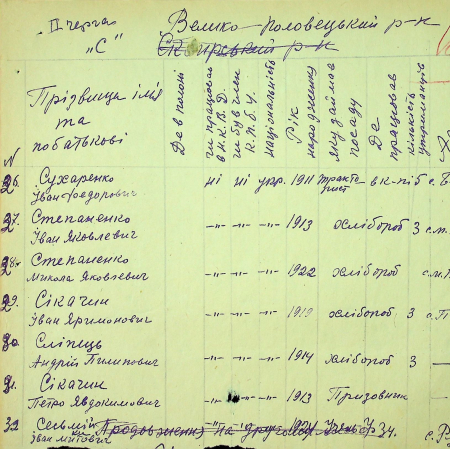 II черга Велико-половецький р-н
"С" Сквирський р-н
N Прізвище ім'я та побатькові Де в полоні чи працював в Н.К.В.Д. чи був член К.П.б.У. національність Рік народження яку займав посаду Де працював кількість утриманців
26. Сухаренко Іван Федорович ні ні укр. 1911 тракторист в к-пі б с.
27. Степаненко Іван Яковлевич -"- -"- -"- 1913 хлібороб 3 с.м.
28. Степаненко Микола Яковлевич -"- -"- -"- 1922 хлібороб с.м.
29. Сікачин Іван Яримонович -"- -"- -"- 1919 хлібороб 3 с.П
30. Сліпець Андрій Пилипович -"- -"- -"- 1914 хлібороб 3 —
31. Сікачин Петро Явдокимович -"- -"- 1913 Призовник —
32 Іван Митович Продовження на другому 34. с.Р